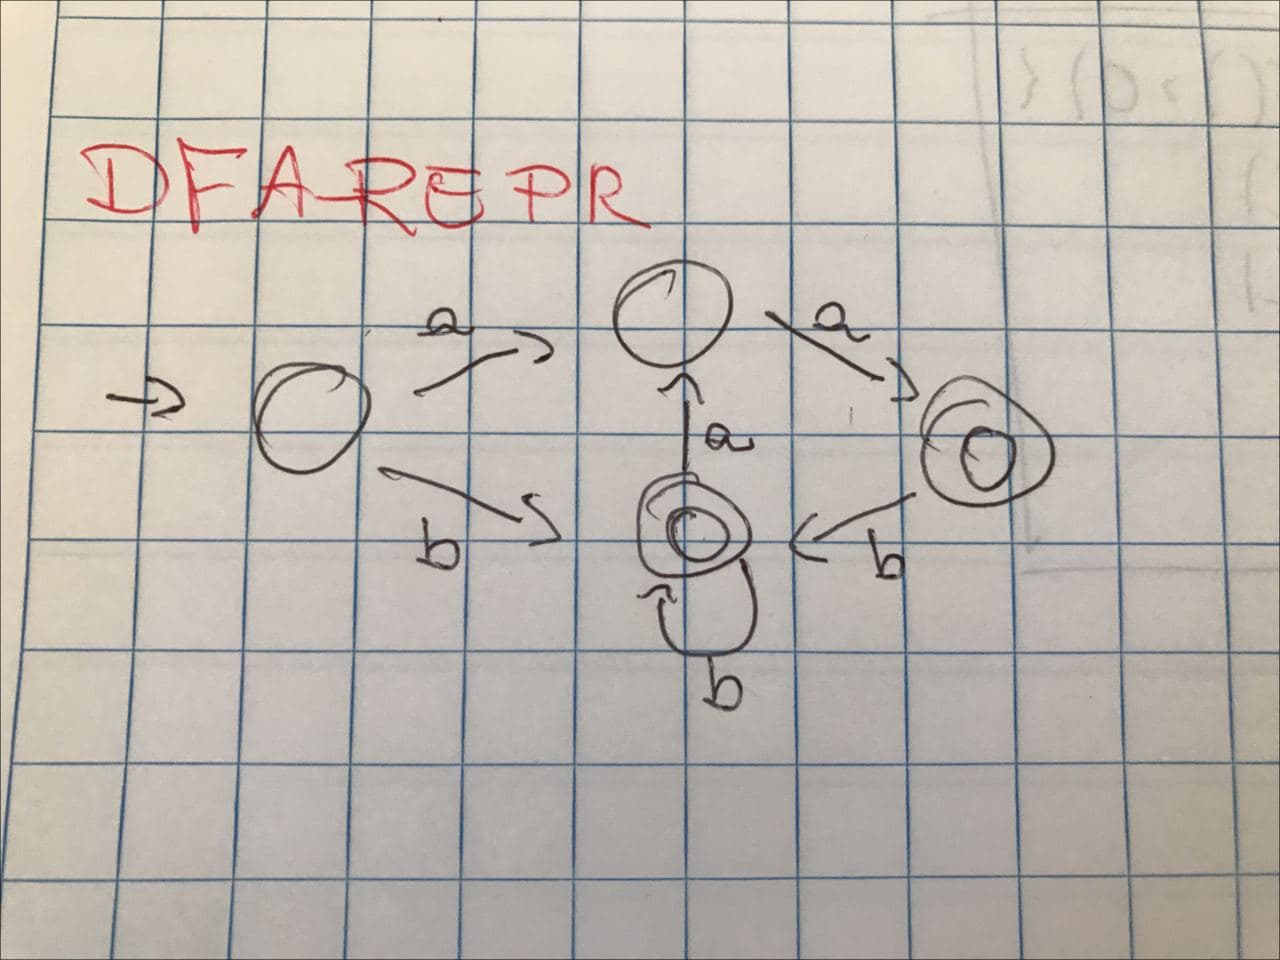 DFA-REPR
a
a
a
b
b
b